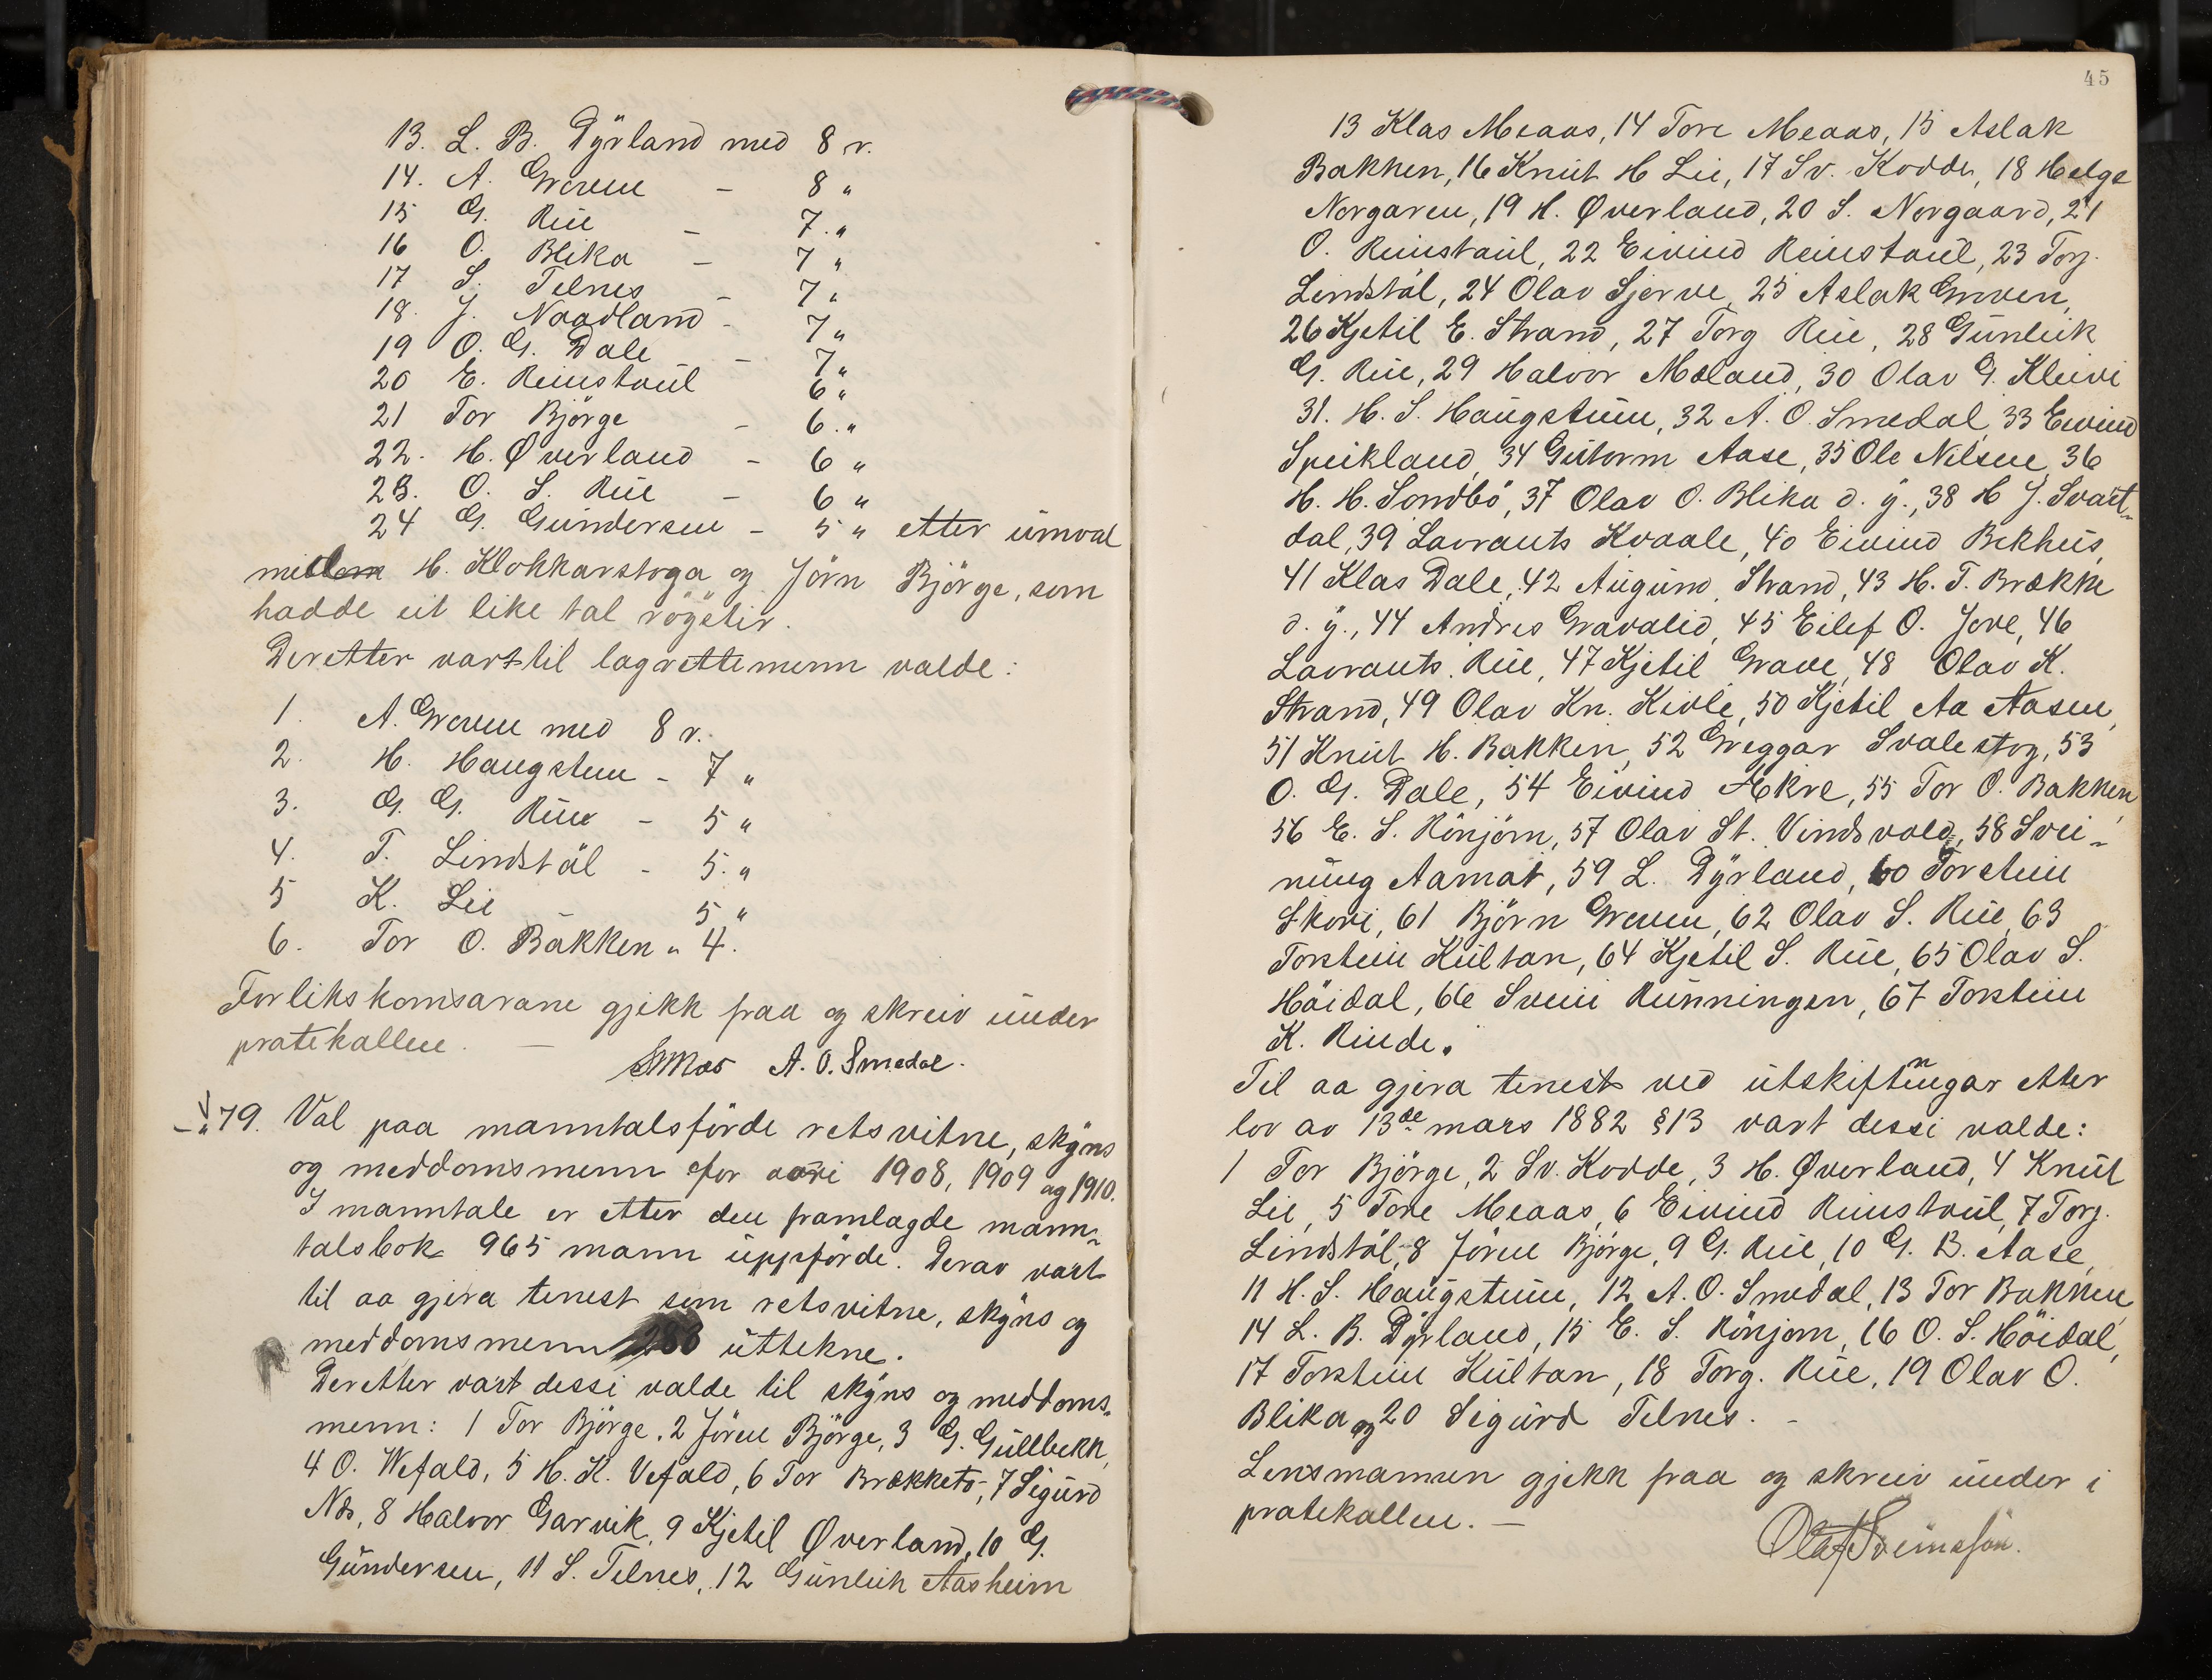 13. L. B. Dyrland med 8 r.
14. A. Graven - 8 "
15 G. Rue - 7. "
16 O. Blika - 7 "
17 S. Telnes - 7 "
18. J. Naadland - 7 "
19 O. G. Dale - 7 "
20 E. Reinstaul 6 "
21 Tor Björge - 6. "
22. H. Øverland - 6 "
23. O. S. Rue - 6 "
24 G. Gundersen - 5 " etter umval
millom H. Klokkarstoga og Jörn Björge, som
hadde eit like tal röyster.
Deretter vart til lagrettemenn valde:
1. A. Graven med 8 r.
2. H. Haugstun - 7 "
3. G. G. Rue - 5 "
4. T. Lindstöl - 5. "
5 K. Lie 5 "
6. Tor O. Bakken " 4.
Forlikskomsarane gjekk fraa og skreiv under
pratekallen. —
A. O. Smedal.
79. Val paa manntalsförde retsvitne, skyns
og meddomsmenn for aari 1908, 1909 og 1910.
I manntale er etter den framlagde mann-
talsbok 965 mann uppförde. Derav vart
til aa gjera tenest som retsvitne, skyns og
meddomsmenn 283 uttekne.
Deretter vart dessi valde til skyns og meddoms-
menn: 1 Tor Björge, 2 Jören Björge, 3 G. Gullbekk,
4 O. Wefald, 5 H. K. Vefald, 6 Tor Brækketo, 7 Sigurd
Nes, 8 Halvor Garvik, 9 Kjetil Øverland, 10 G.
Gundersen, 11 S. Telnes, 12 Gunleik Aasheim
45
13 Klas Meaas, 14 Tore Meaas, 15 Aslak
Bakken, 16 Knut H Lie, 17 Sv. Kodde, 18 Helge
Norgaren, 19 H. Øverland, 20 S. Norgaard, 21
O. Reinstaul, 22 Eivind Reinstaul, 23 Torj.
Lindstöl, 24 Olav Sjerve, 25 Aslak Graven,
26 Kjetil E. Strand, 27 Torg Rue, 28 Gunleik
G. Rue, 29 Halvor Mæland, 30 Olav G. Kleivi
31. H. S. Haugstun, 32 A. O. Smedal, 33 Eivind
Speikland, 34 Gutorm Aase, 35 Ole Nilsen, 36
H. H. Sondbö, 37 Olav O. Blika d. y., 38 H J. Svart-
dal, 39 Lavrants Kvaale, 40 Eivind Bekhus,
41 Klas Dale, 42 Augund Strand, 43 H. T. Brække
d. y., 44 Andres Gravalid, 45 Eilef O. Jore, 46
Lavrants Rue, 47 Kjetil Grave, 48 Olav K.
Strand, 49 Olav Kn. Kivle, 50 Kjetil Aa Aasen,
51 Knut H. Bakken, 52 Greggar Svalestog, 53
O. G. Dale, 54 Eivind Ækre, 55 Tor O. Bakken,
56 E. S. Rönjom, 57 Olav St. Vindsvold, 58 Svei-
nung Aamot, 59 L. Dyrland, 60 Torstein
Skori, 61 Björn Graven, 62 Olav S. Rue, 63
Torstein Kultan, 64 Kjetil S. Rue, 65 Olav S.
Höidal, 66 Svein Runningen, 67 Torstein
K. Rinde.
Til aa gjera tenest ved utskiftningar etter
lov av 13de mars 1882 § 13 vart dessi valde:
1 Tor Björge, 2 Sv. Kodde, 3 H. Øverland, 4 Knut
Lie, 5 Tore Meaas, 6 Eivind Reinstaul, 7 Torj.
Lindstöl, 8 Jören Björge, 9 G. Rue, 10 G. B. Aase,
11 H. S. Haugstun, 12 A. O. Smedal, 13 Tor Bakken,
14 L. B. Dyrland, 15 E. S. Rönjom, 16 O. S. Höidal,
17 Torstein Kultan, 18 Torg. Rue, 19 Olav O.
Blika og 20 Sigurd Telnes. -
Lensmannen gjekk fraa og skreiv under i
pratekallen. —
Olaf Sveinsson.